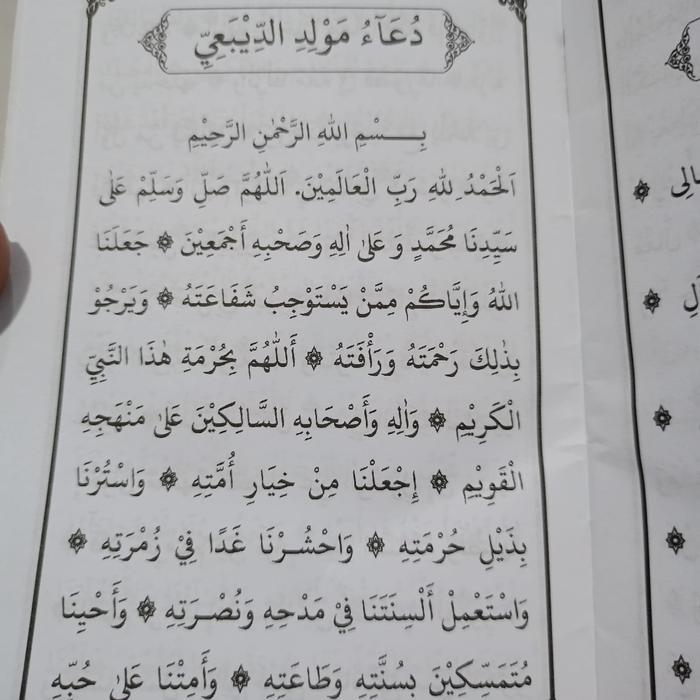 دُعَآءُ مَوْلِدِ الدِّيْبَعِيِّ
بِسْمِ اللهِ الرَّحْمٰنِ الرَّحِيْمِ
اَلْحَمْدُ لِلهِ رَبِّ الْعَالَمِيْنَ. اَللّٰهُمَّ صَلِّ وَسَلِّمْ عَلٰى
سَيِّدِنَا مُحَمَّدٍ وَ عَلٰى اٰلِهِ وَصَحْبِهِ أَجْمَعِيْنَ ۞ جَعَلَنَا
اللهُ وَإِيَّاكُمْ مِمَّنْ يَسْتَوْجِبُ شَفَاعَتَهُ ۞ وَيَرْجُوْ
بِذٰلِكَ رَحْمَتَهُ وَرَأْفَتَهُ ۞ أَللّٰهُمَّ بِحُرْمَةِ هٰذَا النَّبِيِّ
الْكَرِيْمِ ۞ وَاٰلِهِ وَأَصْحَابِهِ السَّالِكِيْنَ عَلٰى مَنْهَجِهِ
الْقَوِيْمِ ۞ إِجْعَلْنَا مِنْ خِيَارِ أُمَّتِهِ ۞ وَاسْتُرْنَا
بِذَيْلِ حُرْمَتِهِ ۞ وَاحْشُرْنَا غَدًا فِيْ زُمْرَتِهِ ۞
وَاسْتَعْمِلْ أَلْسِنَتَنَا فِيْ مَدْحِهِ وَنُصْرَتِهِ ۞ وَأَحْيِنَا
مُتَمَسِّكِيْنَ بِسُنَّتِهِ وَطَاعَتِهِ ۞ وَأَمِتْنَا عَلٰى حُبِّهِ